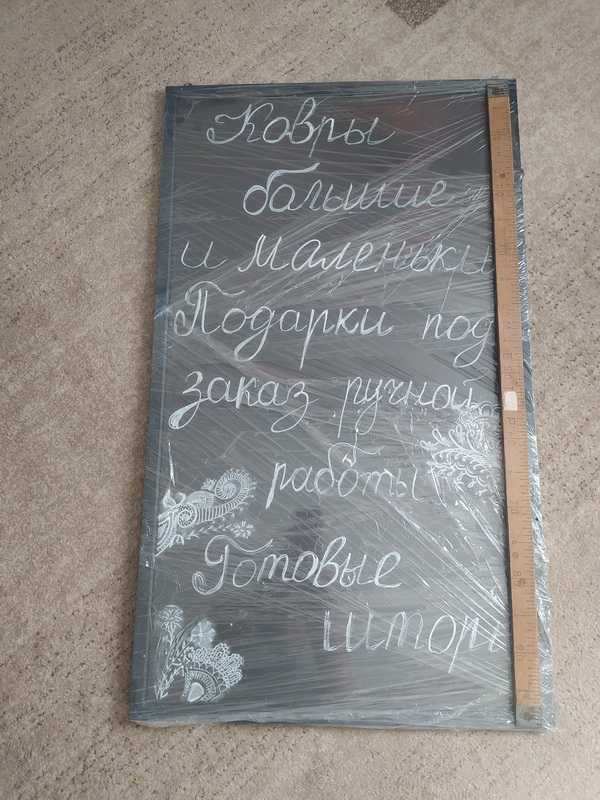 Ковры
большие
и маленьки
Подарки под
заказ ручной
работы
Готовые
штор